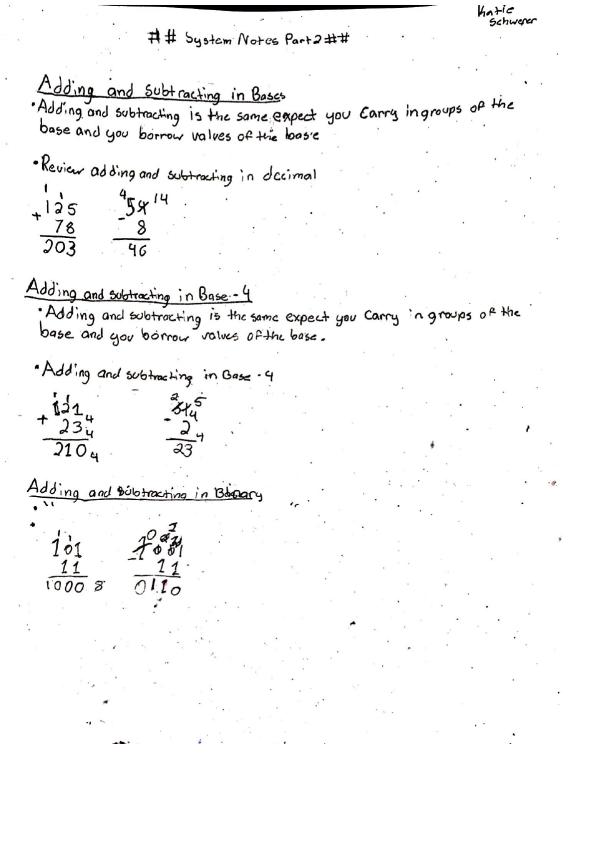 Katie
Schwerer
## System Notes Part 2 ##
Adding and Subtracting in Bases
• Adding and subtracting is the same expect you Carry in groups of the
base and you borrow values of the base
• Review adding and subtracting in decimal
1 1
+ 125
78
203
4 14
54
- 8
46
Adding and subtracting in Base-4
• Adding and subtracting is the same expect you Carry in groups of the
base and you borrow values of the base.
• Adding and subtracting in Base-4
+ 121 4
23 4
210 4
2 5
31 4
- 2 4
23
Adding and subtracting in Binary
• " "
•
1 1
101
11
1000 8
- 11
0110